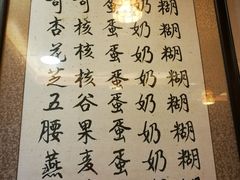 蛋奶糊
杏核蛋奶糊
花核蛋奶糊
芝核蛋奶糊
五谷蛋奶糊
腰果蛋奶糊
燕麦蛋奶糊